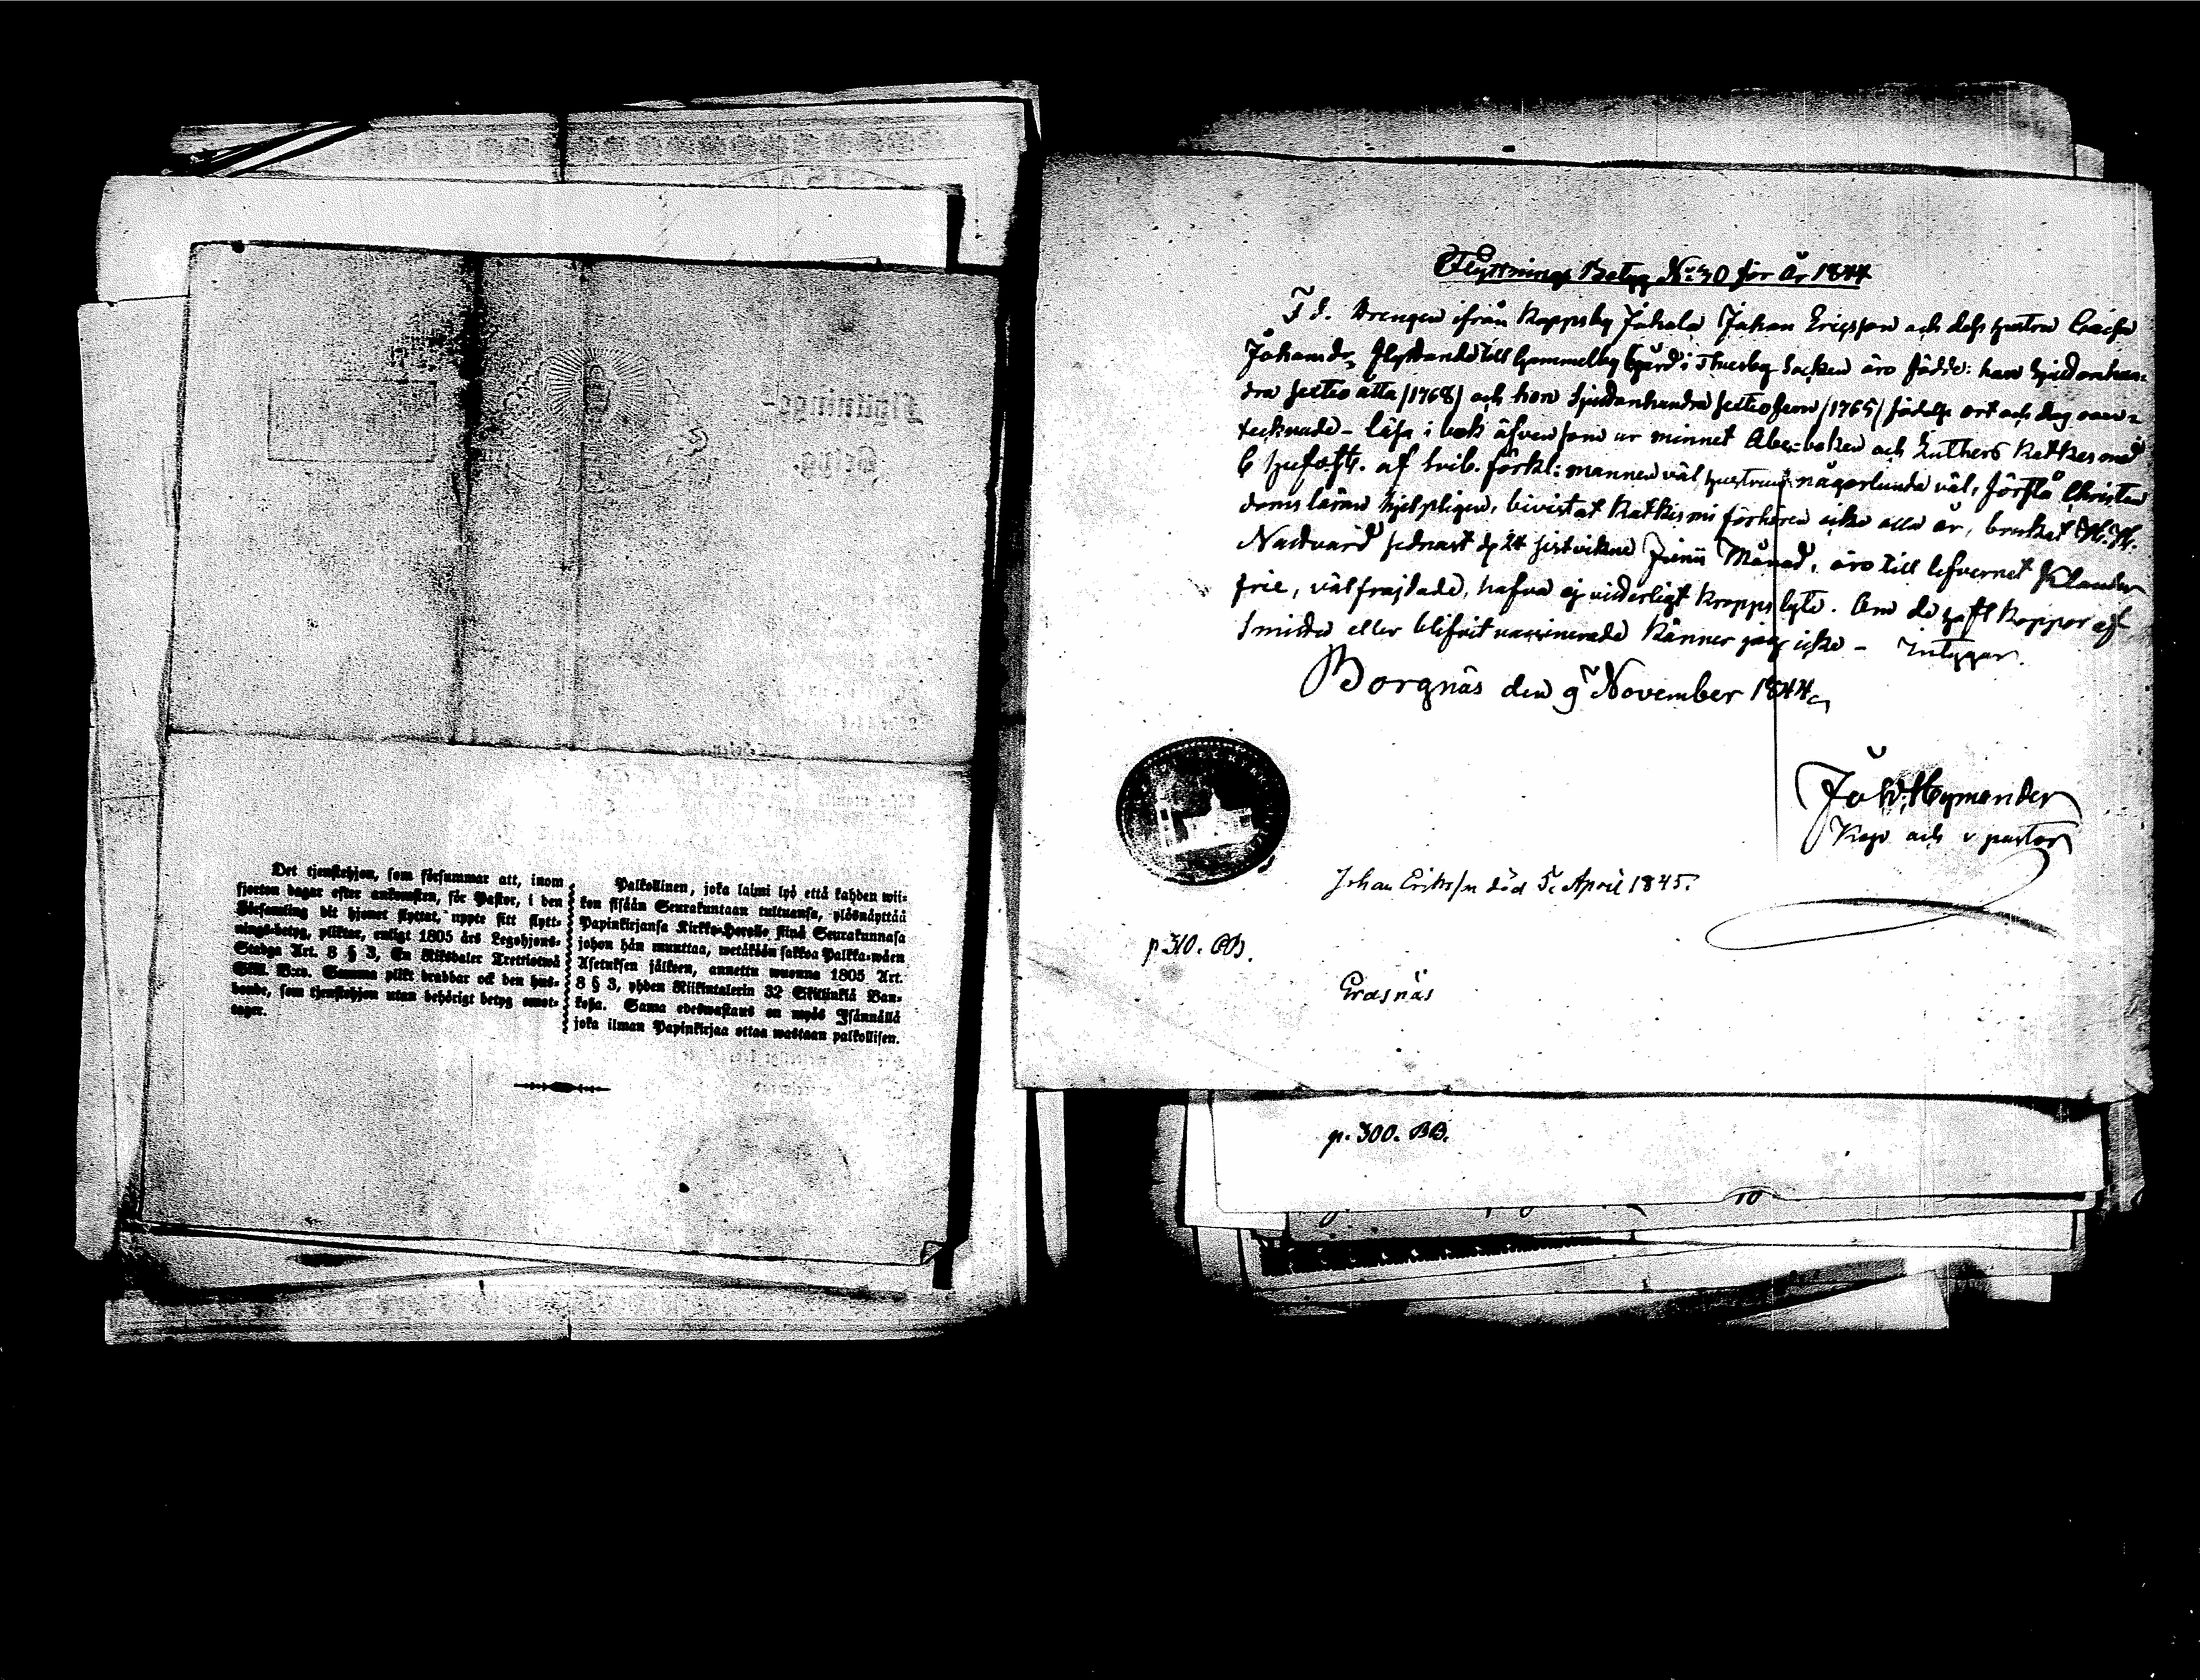 Det tjenstehjon, som försummar att, inom
fjorton dagar efter ankomsten, för Pastor, i den
Församling dit hjonet flyttat, uppte sitt flytt-
nings-betyg, pliktar, enligt 1805 års Legohjons-
Stadga Art. 8 § 3, En Riksdaler Trettiotwå
Skill. B:co. Samma plikt drabbar ock den hus-
bonde, som tjenstehjon utan behörigt betyg emot-
tager.
Palkollinen, joka laimi lyö että kahden wii-
kon sisään Seurakuntaan tultuansa, ylösnäyttää
Papinkirjansa Kirkko-Herralle siinä Seurakunnasa
johon hän muuttaa, wetäköön sakkoa Palkka-wäen
Asetuksen jälkeen, annettu wuonna 1805 Art.
8 § 3, yhden Riikintalerin 32 Skillinkiä Ban-
kosa. Sama edeswastaus on myös Isännällä
joka ilman Papinkirjaa ottaa wastaan palkollisen.
Flyttnings Betyg No 30 för År 1844
F d. Drengen ifrån Koppsby Johan Ericsson och dess hustru
Johansdr, flyttande till Gammelby gård i Thusby Socken äro födde: han Sjuttonhun-
dra sextio åtta /1768/ och hon Sjuttonhundra sextiofem /1765/ födelse ort och dag oan-
tecknade - läsa i bok äfvensom ur minnet Abc-boken och Luthers Katkes med
af Svib. förkl: mannen väl hustrun någorlunda väl, förstå Christen
doms läran hjelpligen, bivistat Katkismi förhören icke alla år, brukat H. H.
Nattvard sednast d. 24 sistvikne Junii Månad, äro till lefvernet Klander
frie, välfrejdade, hafva ej vidderligt Kroppslyte. Om de haft Koppor af
Smitta eller blifvit vaccinerade Känner jag icke - Intygar.
Borgnäs den 9 November 1844
Joh W. Hymander
Kap. och v pastor
Johan Eriks/n död 5. April 1845.
p 310. BB.
Erasnäs
p. 300. BB.
10